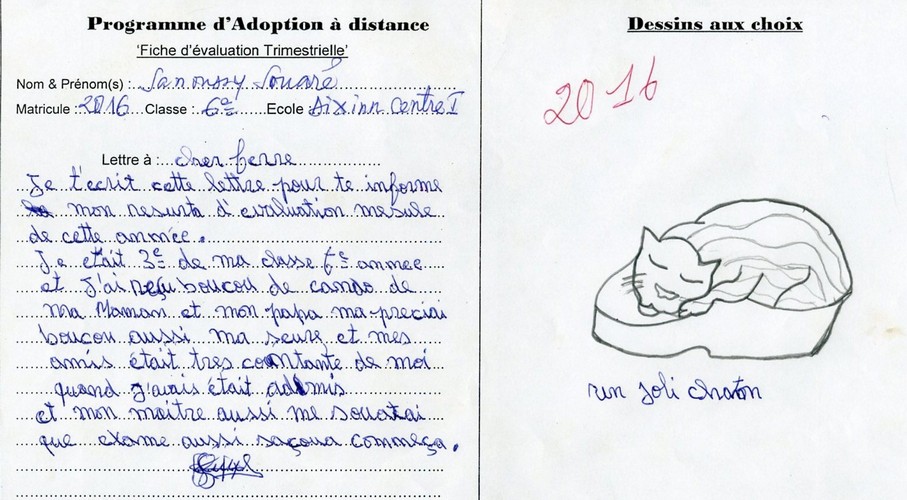 Programme d'Adoption à distance
'Fiche d'évaluation Trimestrielle'
Nom & Prénom(s) : Sanoussy Souaré
Matricule : 2016 Classe : 6e Ecole : Dixinn Centre I
Lettre à : cher ferre
Je t'ecrit cette lettre pour te informe
mon resurta d'evaluation masule
de cette année.
Je etait 3e de ma classe 6e annee
et j'ai reçu boucou de candao de
ma Maman et mon papa ma preciai
boucou aussi ma seure et mes
amis était tres contante de moi
quand j'avais était admis
et mon maitre aussi me souatai
que exame aussi saçoua commeça.
Dessins aux choix
2016
un joli chaton